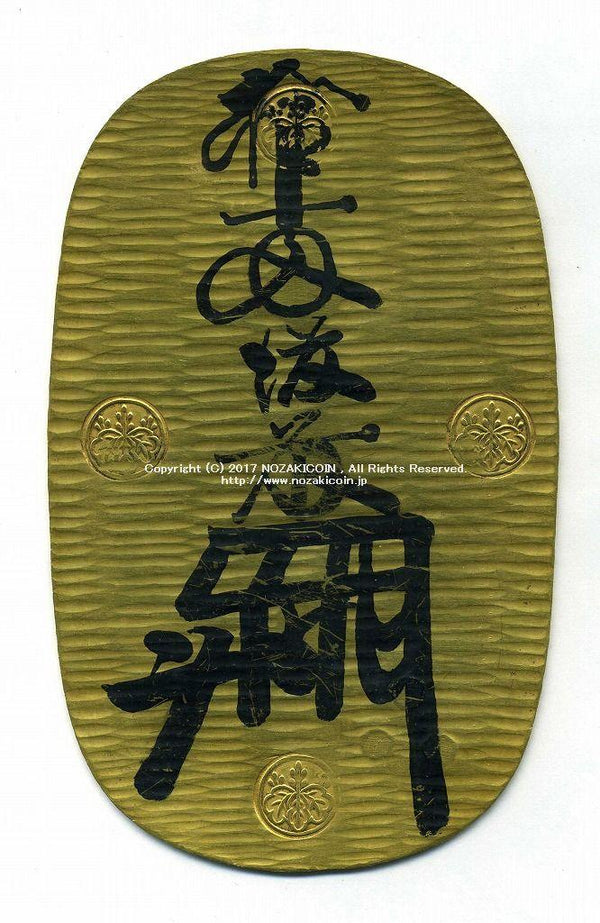 拾両後藤
Copyright (C) 2017 NOZAKICOIN , All Rights Reserved.
http://www.nozakicoin.jp